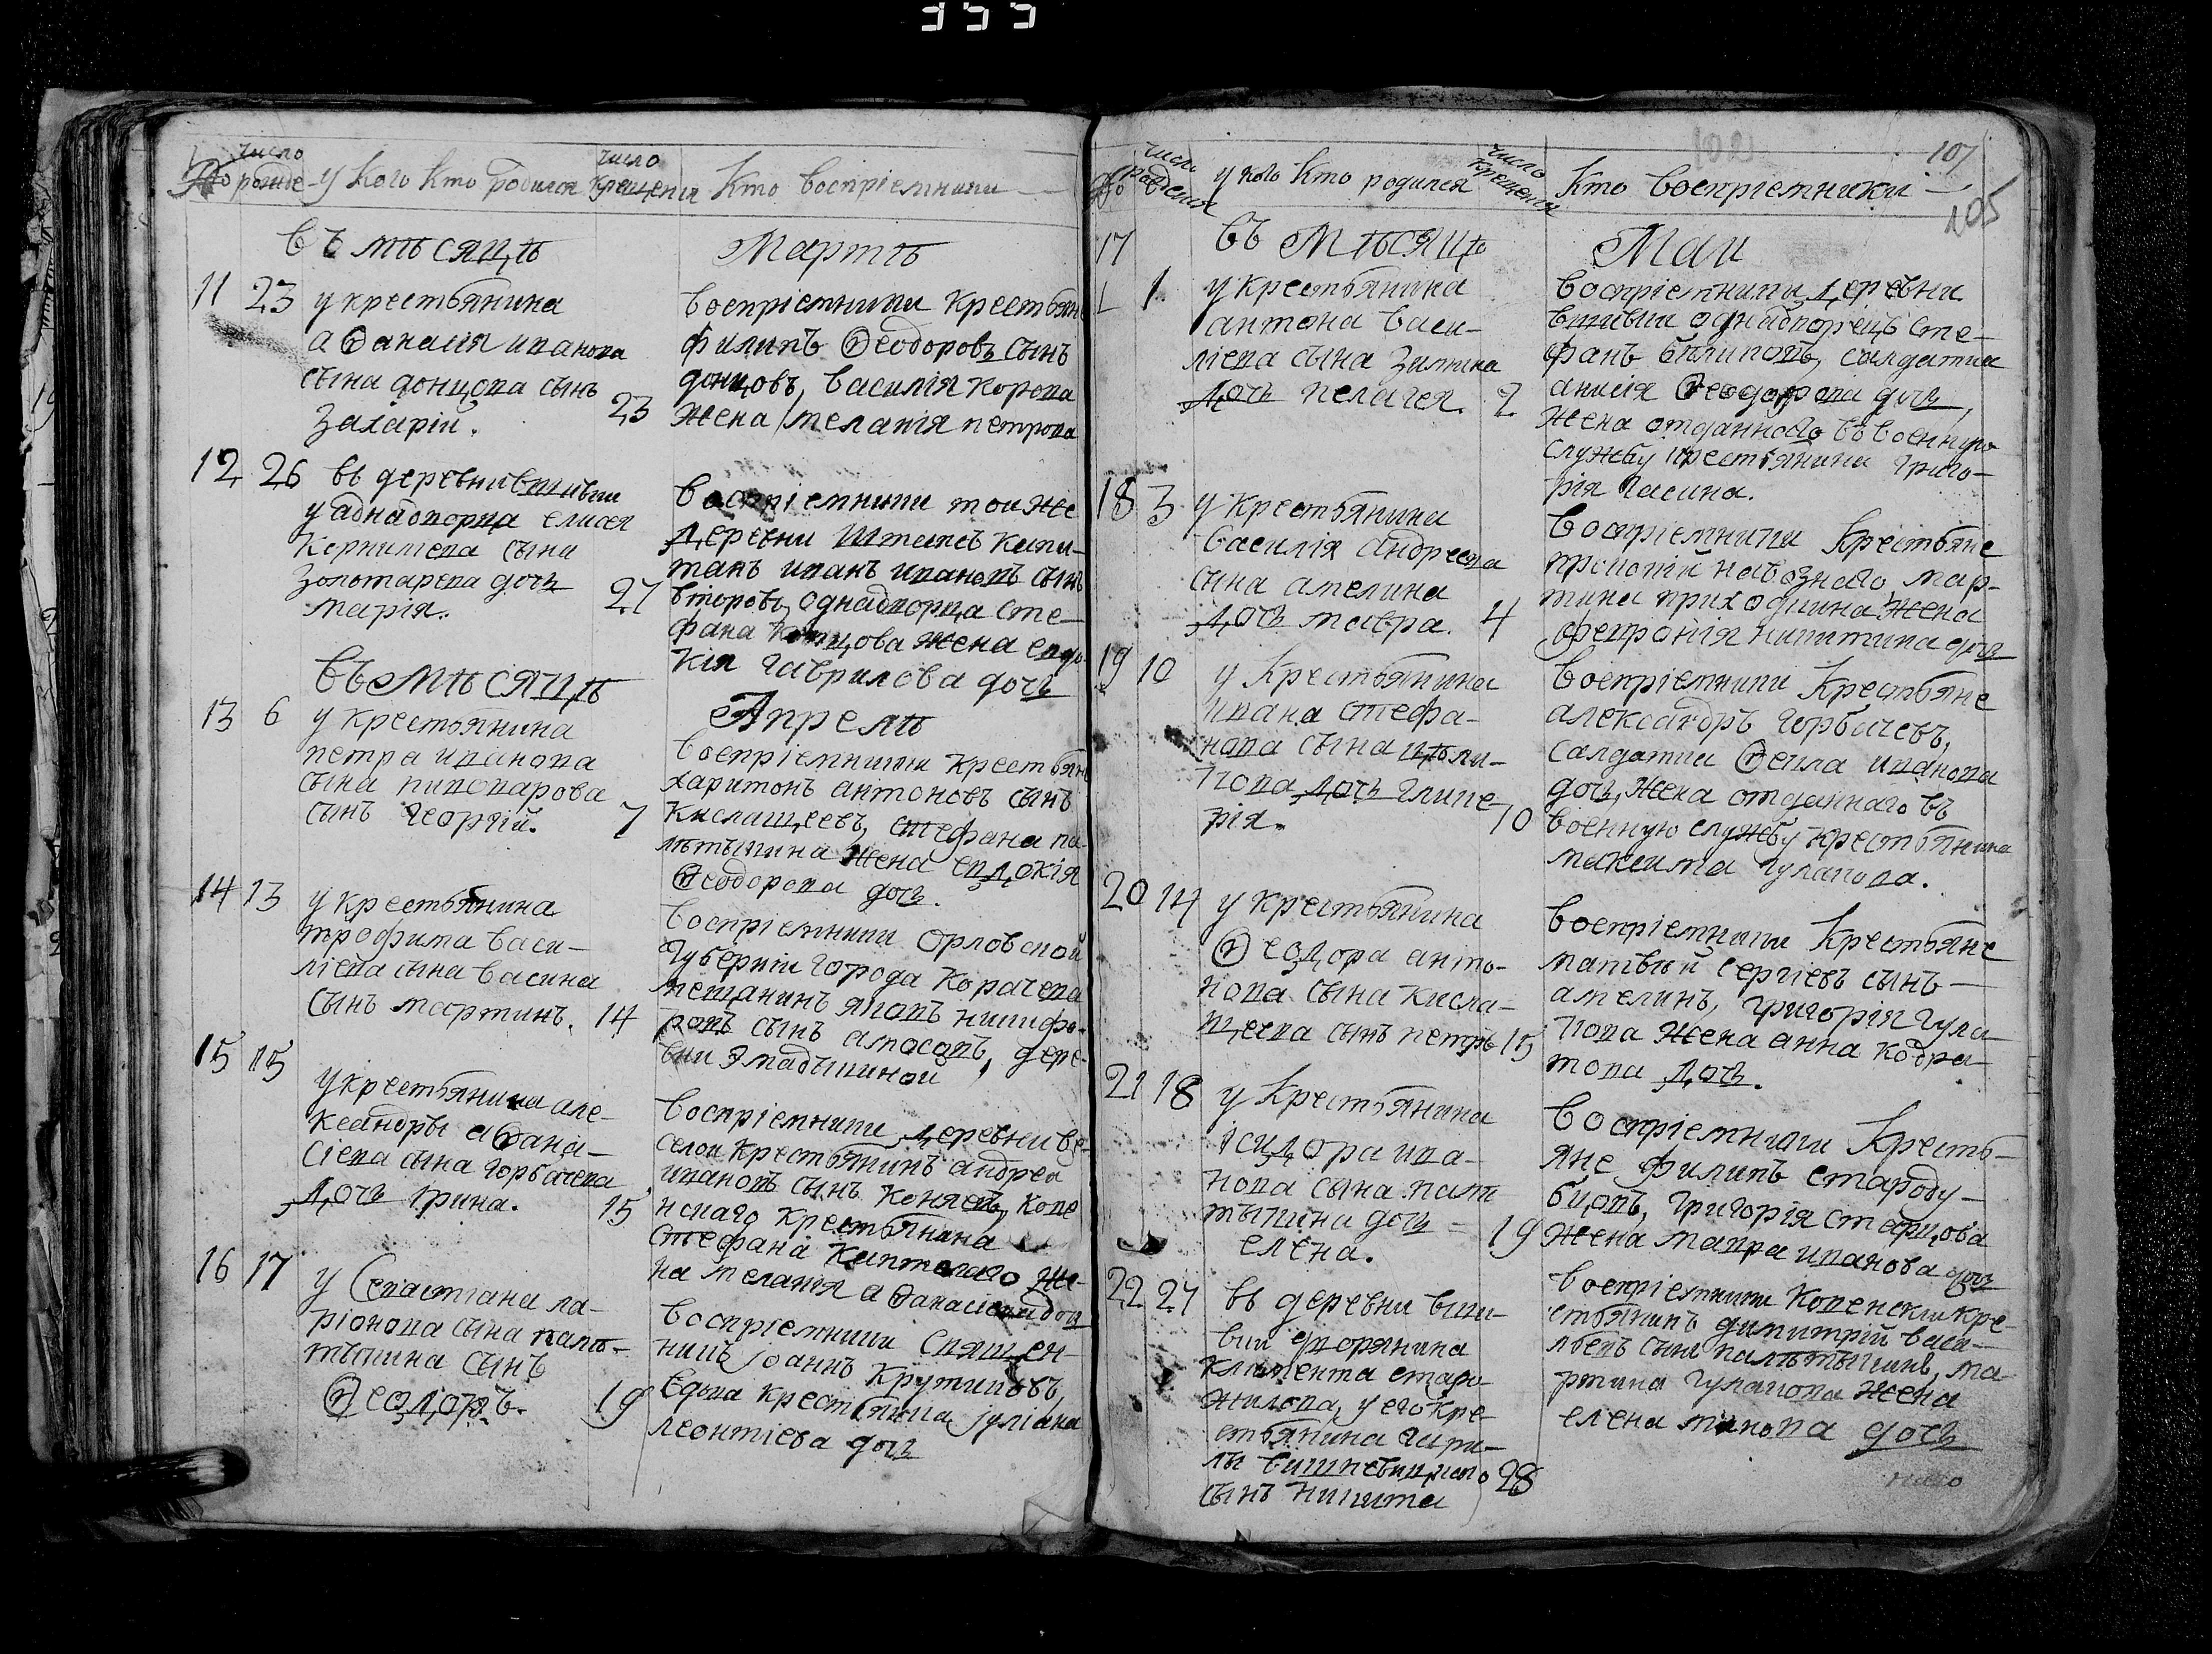 355
число рожде
у кого кто родился
число крещения
Кто воспріемники
въ мѣсяцѣ
Мартѣ
11 23 у крестьянина
аѲанасія иванова
сына донцова сынъ
Захарій. 23
воспріемники крестьяне
филипъ Ѳеодоровъ сынъ
донцовъ, василія
жена меланія петрова
12 26 въ деревни
у аднадворца елисея
Корнилiева сына
Золотарева дочь
марія. 27
воспріемники тои же
деревни Штапсъ капи-
танъ иванъ ивановъ сынъ
второвъ, однадворца сте-
фана жена евдо-
кія гаврилова дочь
въ мѣсяцѣ
Апрелѣ
13 6 у крестьянина
петра иванова
сына пивоварова
сынъ георгій. 7
воспріемники крестьяне
харитонъ антоновъ сынъ
Кислащеевъ, стефана па-
лѣтыкина жена евдокія
Ѳеодорова дочь.
14 13 у крестьянина
трофима васи-
ліева сына васина
сынъ мартинъ. 14
воспріемники Орловской
губерніи города Корачева
мещанинъ яковъ никифо-
ровъ сынъ дере-
вни
15 15 у крестьянина але-
ксандры аѲана-
сіева сына горбачева
дочь ірина. 15
воспріемники деревни ве-
селои крестьянинъ андреи
ивановъ сынъ
нскаго крестьянина
стефана же-
на меланія аѲанасіева дочь
16 17 у Севастіана ла-
ріонова сына палѣ-
тыкина сынъ
Ѳеодоръ. 19
воспріемники священ-
никъ Іоаннъ Крутиковъ,
вдова крестьянка іуліана
леонтіева дочь
число рожденія
у кого кто родился
число крещенія
Кто воспріемники
107
105
въ мѣсяцѣ
Маи
17 1 у крестьянина
антона васи-
ліева сына Зимина
дочь пелагея. 2
воспріемники деревни
однадворецъ сте-
фанъ салдатка
анисія Ѳеодорова дочь,
жена отданнаго въ военную
службу крестьянина григо-
рія васина.
18 3 у крестьянина
василія андреева
сына амелина
дочь мавра. 4
воспріемники крестьяне
прокопій навознаго, мар-
тина жена
февронія никитина дочь
19 10 у крестьянина
ивана стефа-
нова сына
дочь глике-
рія. 10
воспріемники крестьяне
александръ горбачевъ,
салдатка Ѳекла иванова
дочь, жена отданнаго въ
военную службу крестьянина
максима гулакова.
20 14 у крестьянина
Ѳеодора анто-
нова сына кисла-
щеева сынъ петръ 15
воспріемники крестьяне
матвѣй сергіевъ сынъ
амелинъ, григорія гула-
кова жена анна кодра-
това дочь.
21 18 у крестьянина
ісидора ива-
нова сына палѣ-
тыкина дочь
елена. 19
воспріемники кресть-
яне филипъ староду-
бцовъ, григорія старцова
жена мавра иванова дочь
22 27 въ деревни
дворянина
климента старо-
жилова, у его кре-
стьянина кири-
лы
сынъ никита 28
воспріемники кре-
стьянинъ димитрій васи-
льевъ сынъ палѣтыкинъ, ма-
ртина гулакова жена
елена дочь